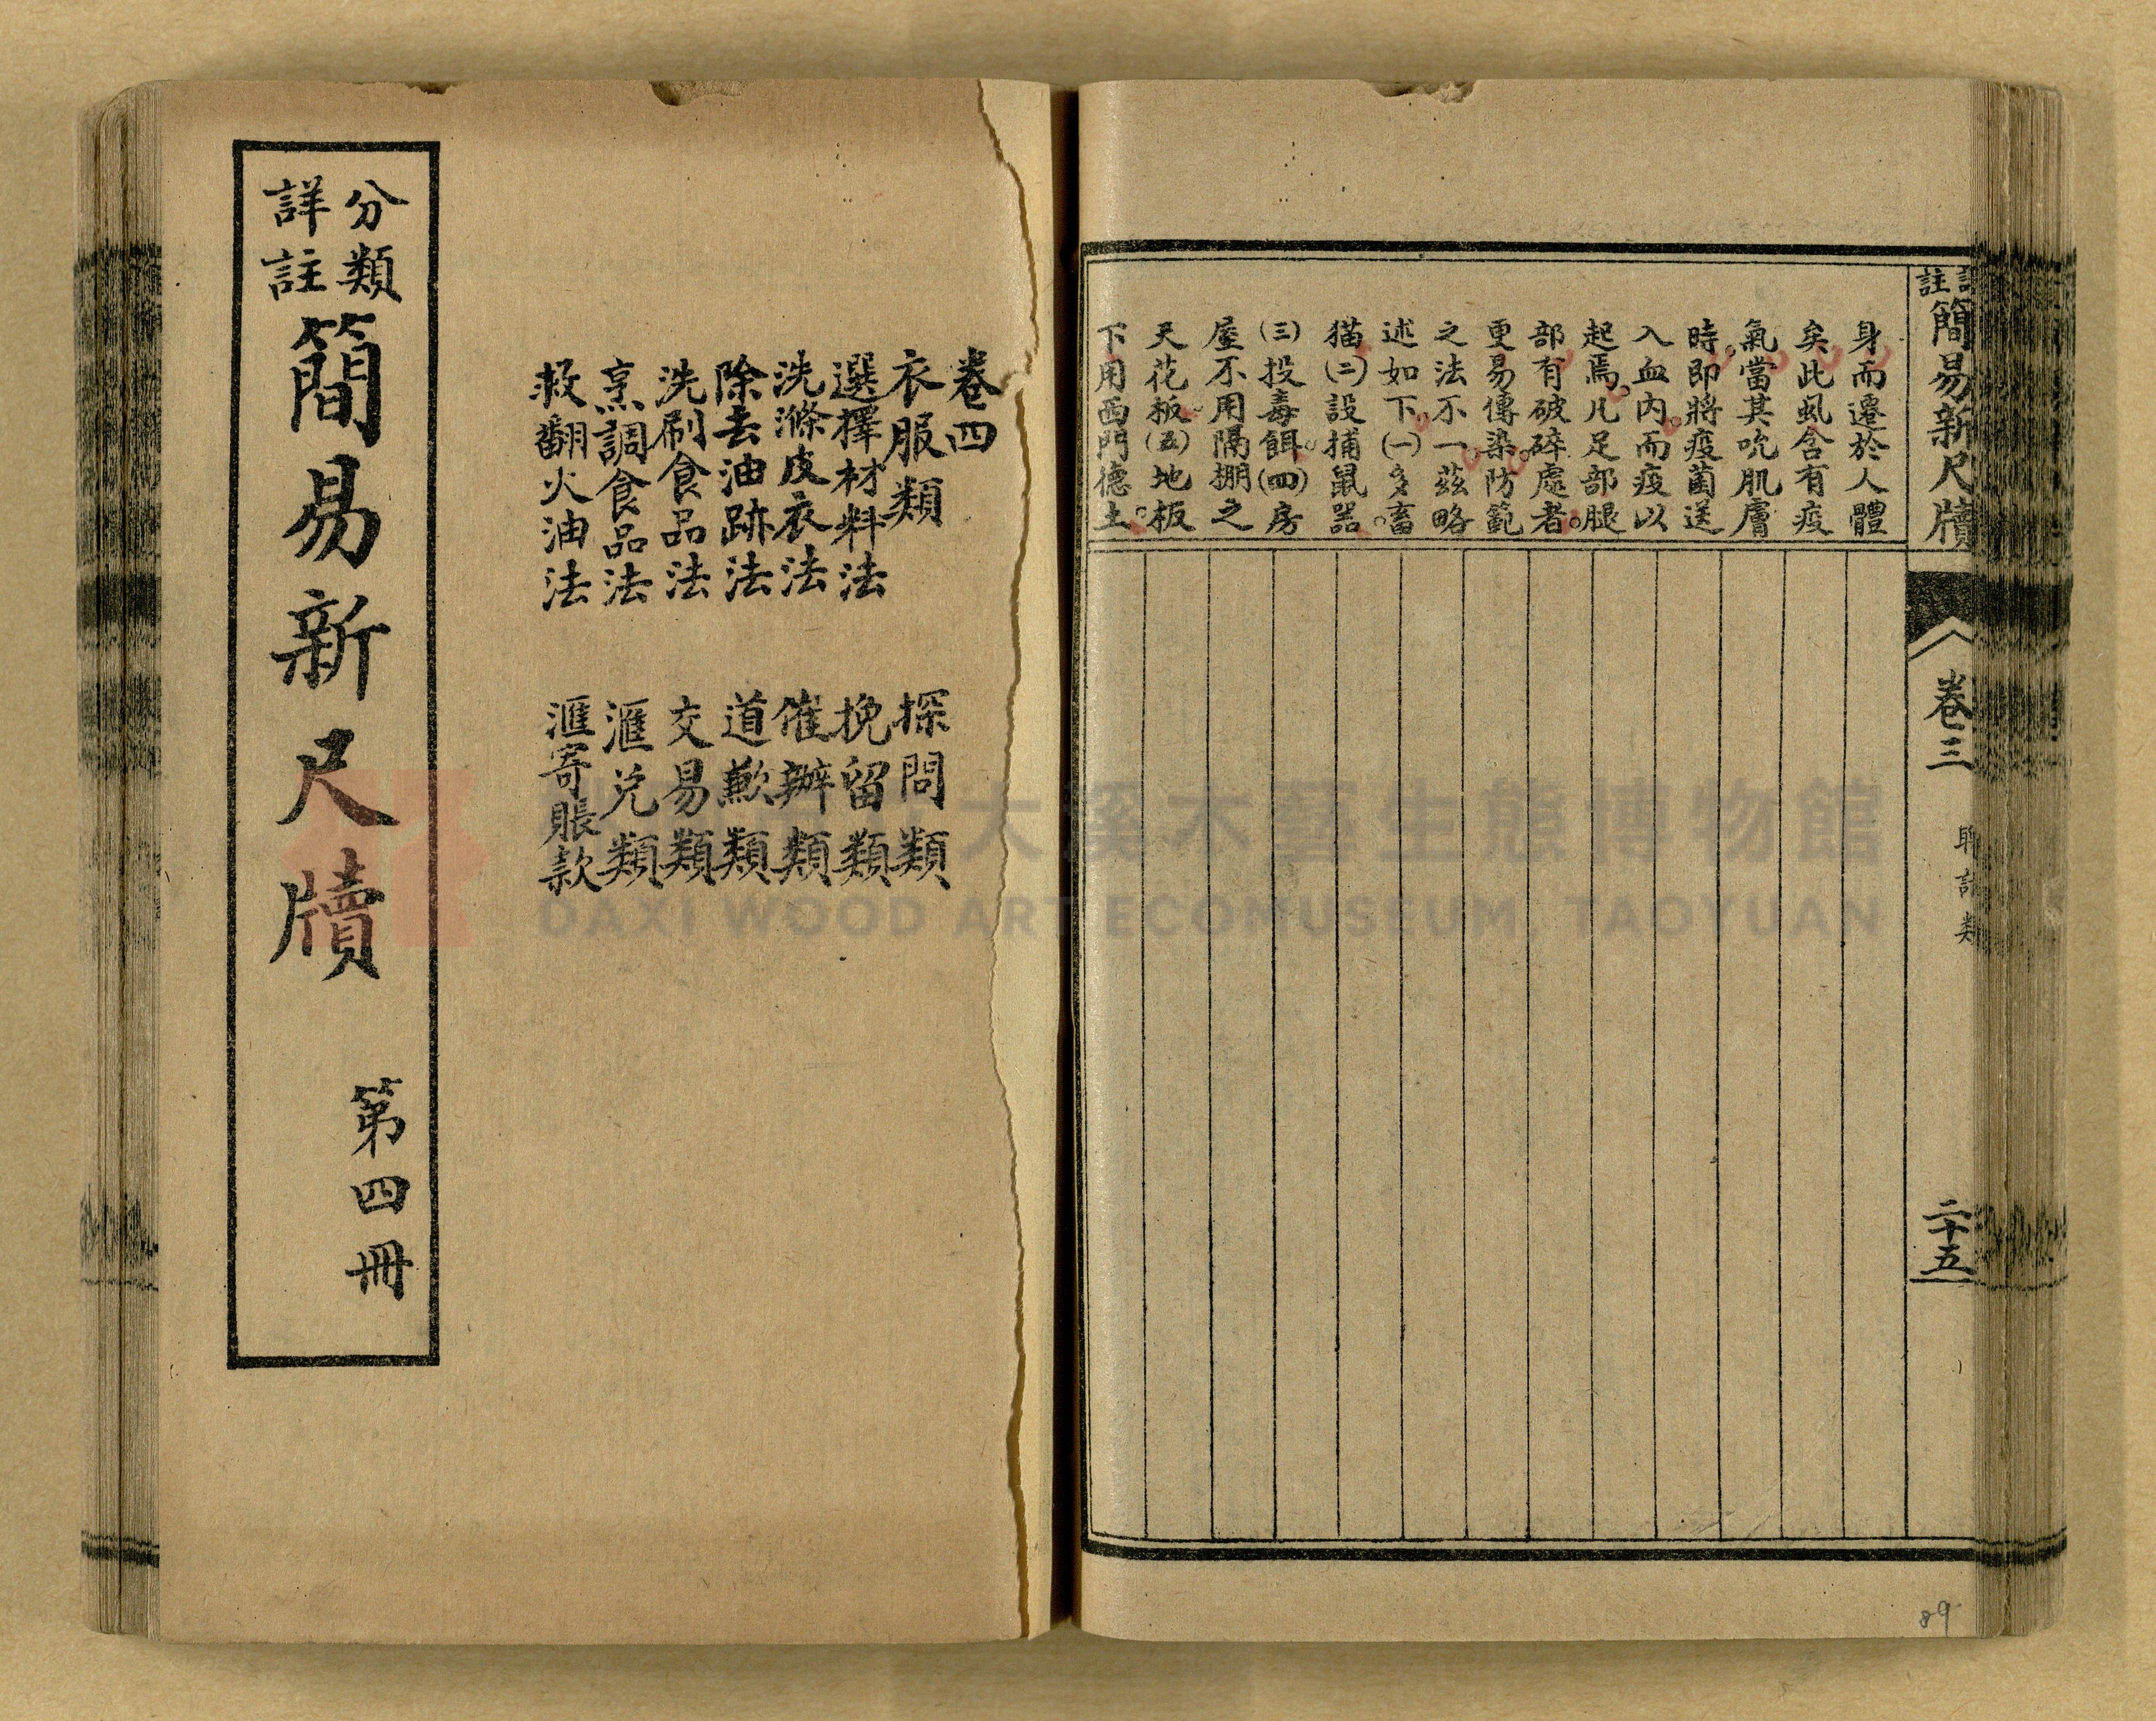 註簡易新尺牘
卷三
二十五
身而遷於人體
矣此虱含有疫
氣當其吮肌膚
時。即將疫菌送
入血內。而疫以
起焉。凡足部腿
部有破碎處者。
更易傳染。防範
之法不一。茲略
述如下。(一)多畜
猫(二)設捕鼠器。
(三)投毒餌。(四)房
屋不用隔棚之
天花板。(五)地板
下用西門德土。
89
卷四
衣服類
選擇材料法
洗滌皮衣法
除去油跡法
洗刷食品法
烹調食品法
救翻火油法
探問類
挽留類
催辦類
道歉類
交易類
滙兌類
滙寄賬款
分類
詳註
簡易新尺牘
第四冊
大溪木藝生態博物館
DAXI WOOD ART ECOMUSEUM, TAOYUAN